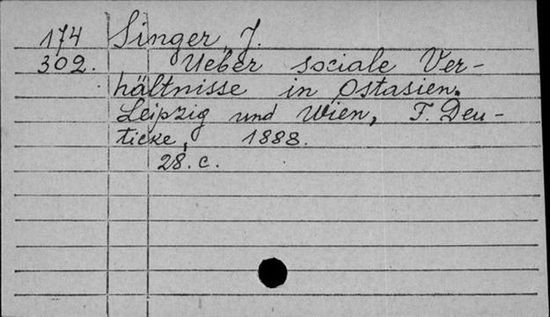 174 Singer, J.
302. Ueber sociale Ver-
hältnisse in Ostasien.
Leipzig und Wien, F. Deu-
ticke, 1888.
28. c.